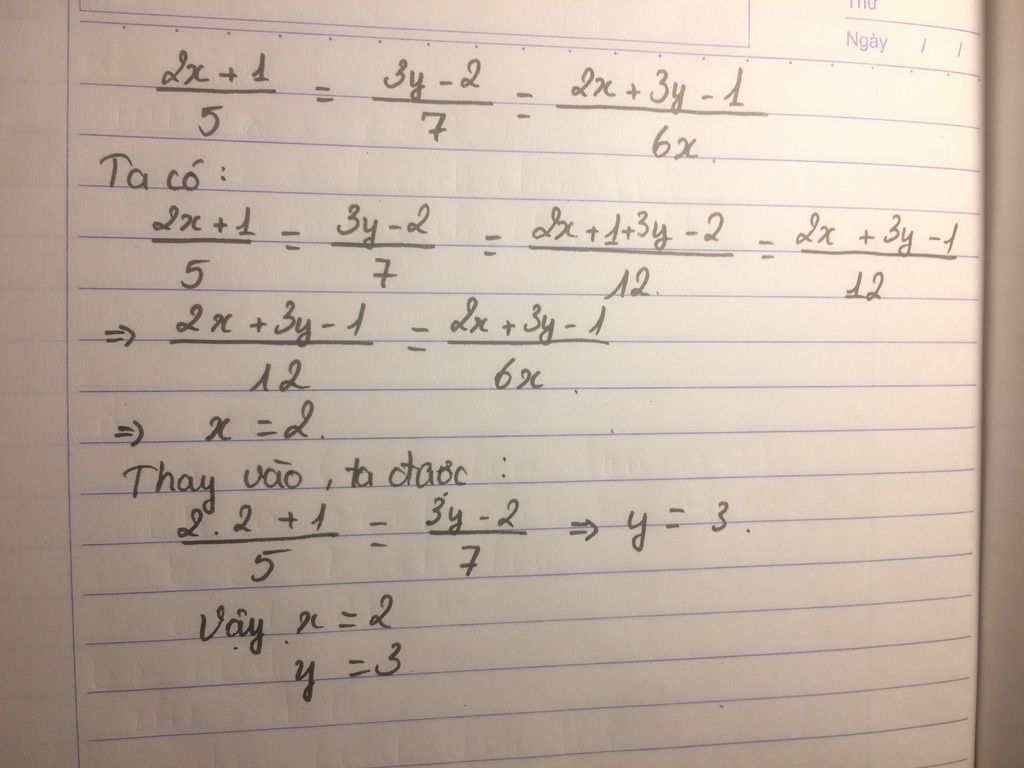 Thứ
Ngày / /
(2x + 1)/5 = (3y - 2)/7 = (2x + 3y - 1)/6x
Ta có:
(2x + 1)/5 = (3y - 2)/7 = (2x + 1 + 3y - 2)/12 = (2x + 3y - 1)/12
⇒ (2x + 3y - 1)/12 = (2x + 3y - 1)/6x
⇒ x = 2.
Thay vào, ta được:
(2.2 + 1)/5 = (3y - 2)/7 ⇒ y = 3.
Vậy x = 2
y = 3